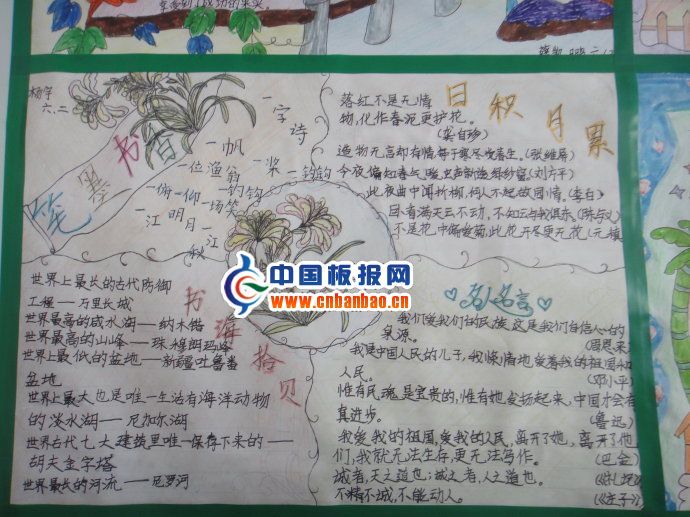 杨宇
六、二
书香
一字诗
一帆
一桨
一位渔翁
一钓钩
一俯一仰一场笑
一江明月一江秋
日积月累
落红不是无情
物,化作春泥更护花。
(龚自珍)
造物无言却有情,每于寒尽觉春生。(张维屏)
今夜偏知春气暖,虫声新透绿纱窗。(刘方平)
此夜曲中闻折柳,何人不起故园情。(李白)
卧看满天云不动,不知云与我俱东。(陈与义)
不是花中偏爱菊,此花开尽更无花。(元稹
中国板报网
www.cnbanbao.cn
书海拾贝
世界上最长的古代防御
工程——万里长城
世界最高的咸水湖——纳木错
世界最高的山峰——珠穆朗玛峰
世界上最低的盆地——新疆吐鲁番
盆地
世界上最大也是唯一生活有海洋动物
的淡水湖——尼加尔湖
世界古代七大建筑里唯一保存下来的——
胡夫金字塔
世界最长的河流——尼罗河
名人名言
我们爱我们的民族,这是我们自信心的
泉源。
(周恩来)
我是中国人民的儿子,我深情地爱着我的祖国和
人民。
(邓小平)
惟有民魂是宝贵的,惟有她发扬起来,中国才会有
真进步。
(鲁迅)
我爱我的祖国,爱我的人民,离开了她,离开了他
们,我就无法生存,更无法写作。
(巴金)
诚者,天之道也;诚之者,人之道也。
(《礼记》)
不精不诚,不能动人。
(《庄子》)